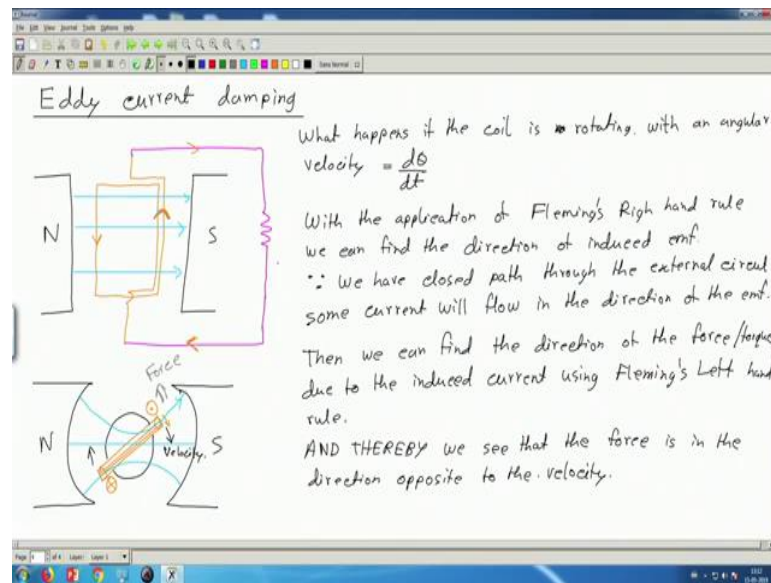 Eddy current damping
N
S
N
S
Force
Velocity.
What happens if the coil is rotating. with an angular
velocity = dθ/dt
With the application of Fleming's Righ hand rule
we can find the direction of induced emf.
∵ We have closed path through the external circui
some current will flow in the direction of the emf.
Then we can find the direction of the force/torque
due to the induced current using Fleming's Left hand
rule.
AND THEREBY we see that the force is in the
direction opposite to the velocity.
File Edit View Journal Tools Options Help
Sans Normal 12
Page 4 of 4 Layer: Layer 1